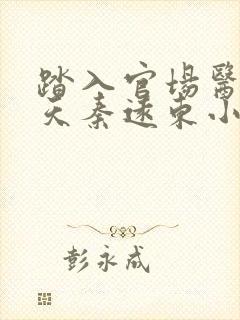 踏入官場醫
天秦遠東小
彭永成